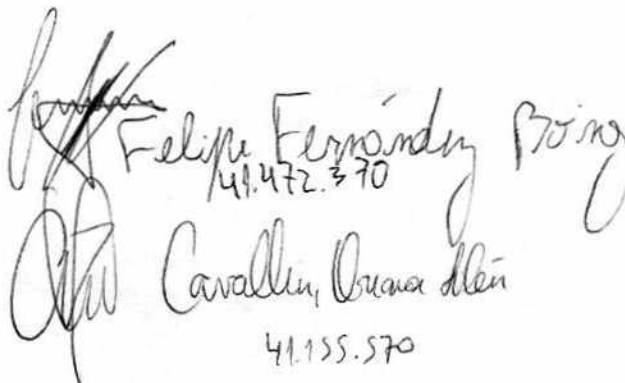 Felipe Fernández
41.472.370
Cavallin, Oriana Ailén
41.155.570